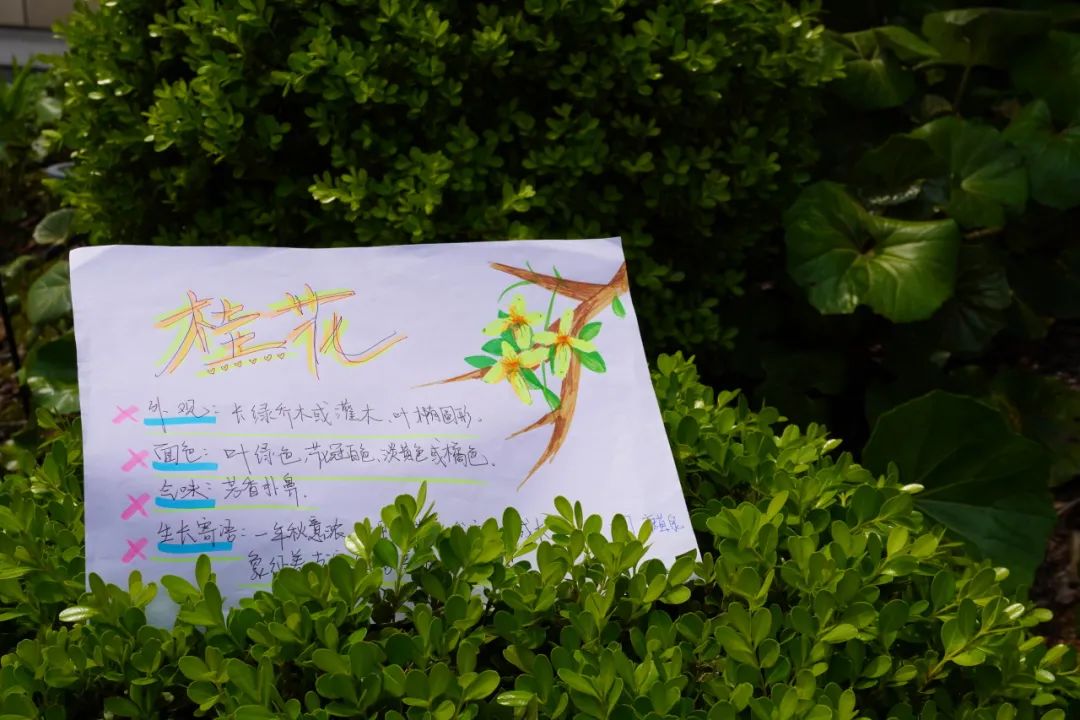 桂花
外观：长绿乔木或灌木、叶椭圆形。
面色：叶绿色，花冠白色、淡黄色或橘色。
气味：芳香扑鼻.
生长寄语：一年秋意浓
象征美